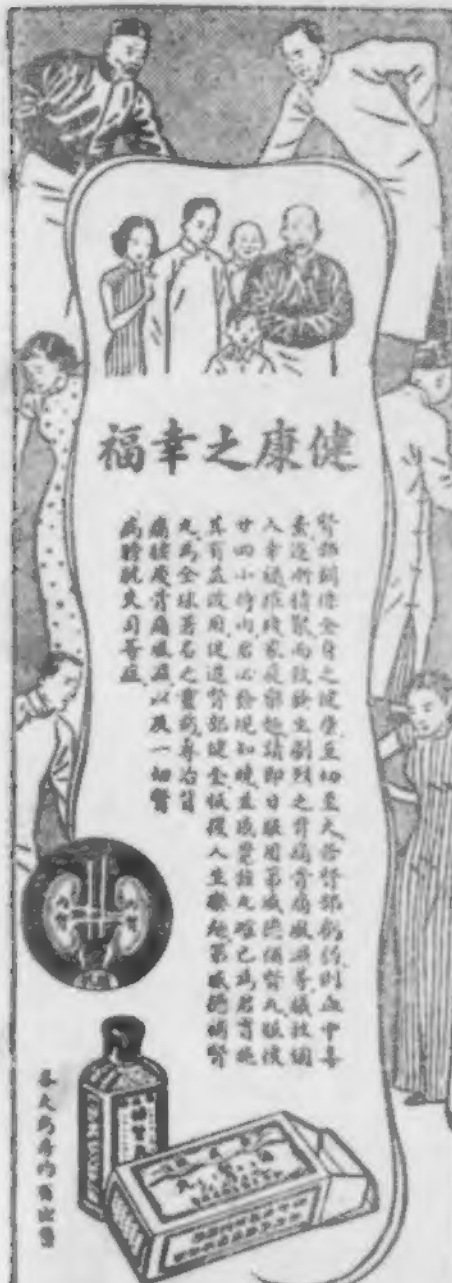 健康之幸福
腎部關係全身之健康至切至大倘腎部虧損則血中毒
素逐漸積聚而致發生劇烈之背痛骨痛風濕等嚴拉個
人幸福摧殘家庭樂趣請即日服用第威德補腎丸服後
廿四小時內君必發現知曉並感覺該丸確已為君實施
其有益效用促進腎部健全恢復人生樂趣第威德補腎
丸為全球著名之靈藥專治背
痛腰痠骨痛風濕以及一切腎
病膀胱失司等症
各大藥房均有出售